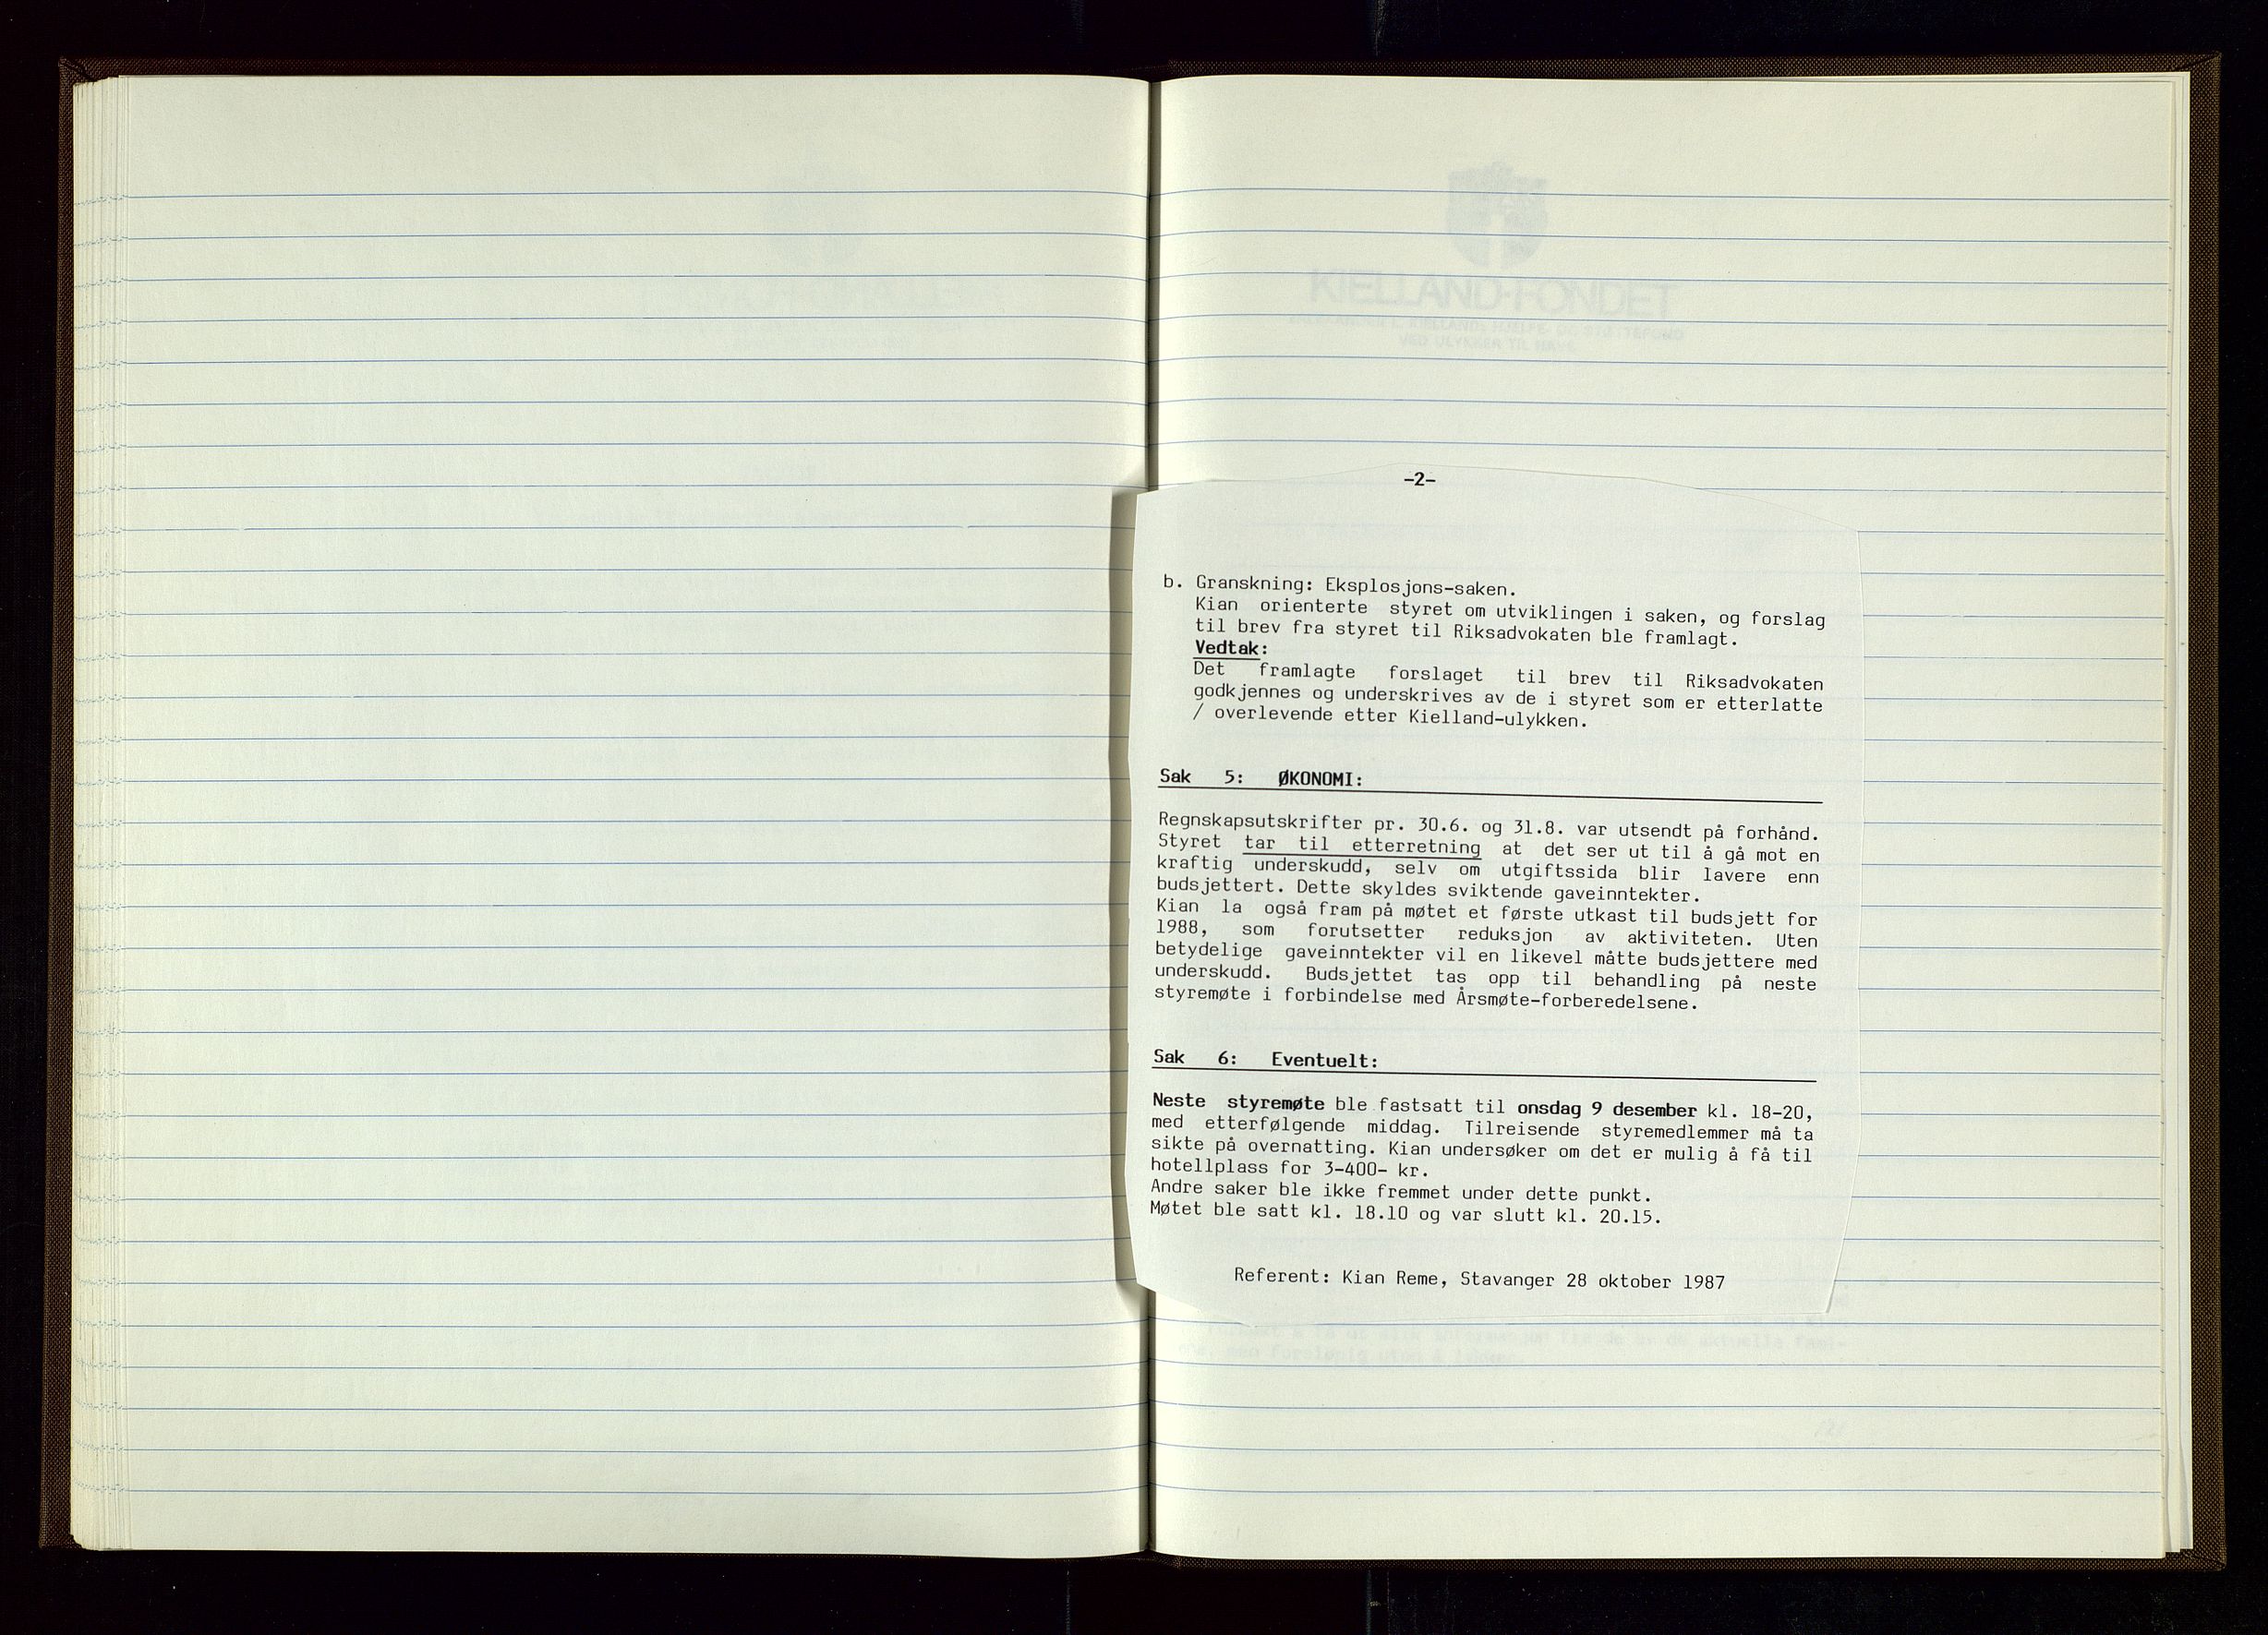 KIELLAND-FONDET
VED ULYKKER TIL HAVS
-2-
b. Granskning: Eksplosjons-saken.
Kian orienterte styret om utviklingen i saken, og forslag
til brev fra styret til Riksadvokaten ble framlagt.
Vedtak:
Det framlagte forslaget til brev til Riksadvokaten
godkjennes og underskrives av de i styret som er etterlatte
/ overlevende etter Kielland-ulykken.
Sak 5: ØKONOMI:
Regnskapsutskrifter pr. 30.6. og 31.8. var utsendt på forhånd.
Styret tar til etterretning at det ser ut til å gå mot en
kraftig underskudd, selv om utgiftssida blir lavere enn
budsjettert. Dette skyldes sviktende gaveinntekter.
Kian la også fram på møtet et første utkast til budsjett for
1988, som forutsetter reduksjon av aktiviteten. Uten
betydelige gaveinntekter vil en likevel måtte budsjettere med
underskudd. Budsjettet tas opp til behandling på neste
styremøte i forbindelse med Årsmøte-forberedelsene.
Sak 6: Eventuelt:
Neste styremøte ble fastsatt til onsdag 9 desember kl. 18-20,
med etterfølgende middag. Tilreisende styremedlemmer må ta
sikte på overnatting. Kian undersøker om det er mulig å få til
hotellplass for 3-400- kr.
Andre saker ble ikke fremmet under dette punkt.
Møtet ble satt kl. 18.10 og var slutt kl. 20.15.
Referent: Kian Reme, Stavanger 28 oktober 1987